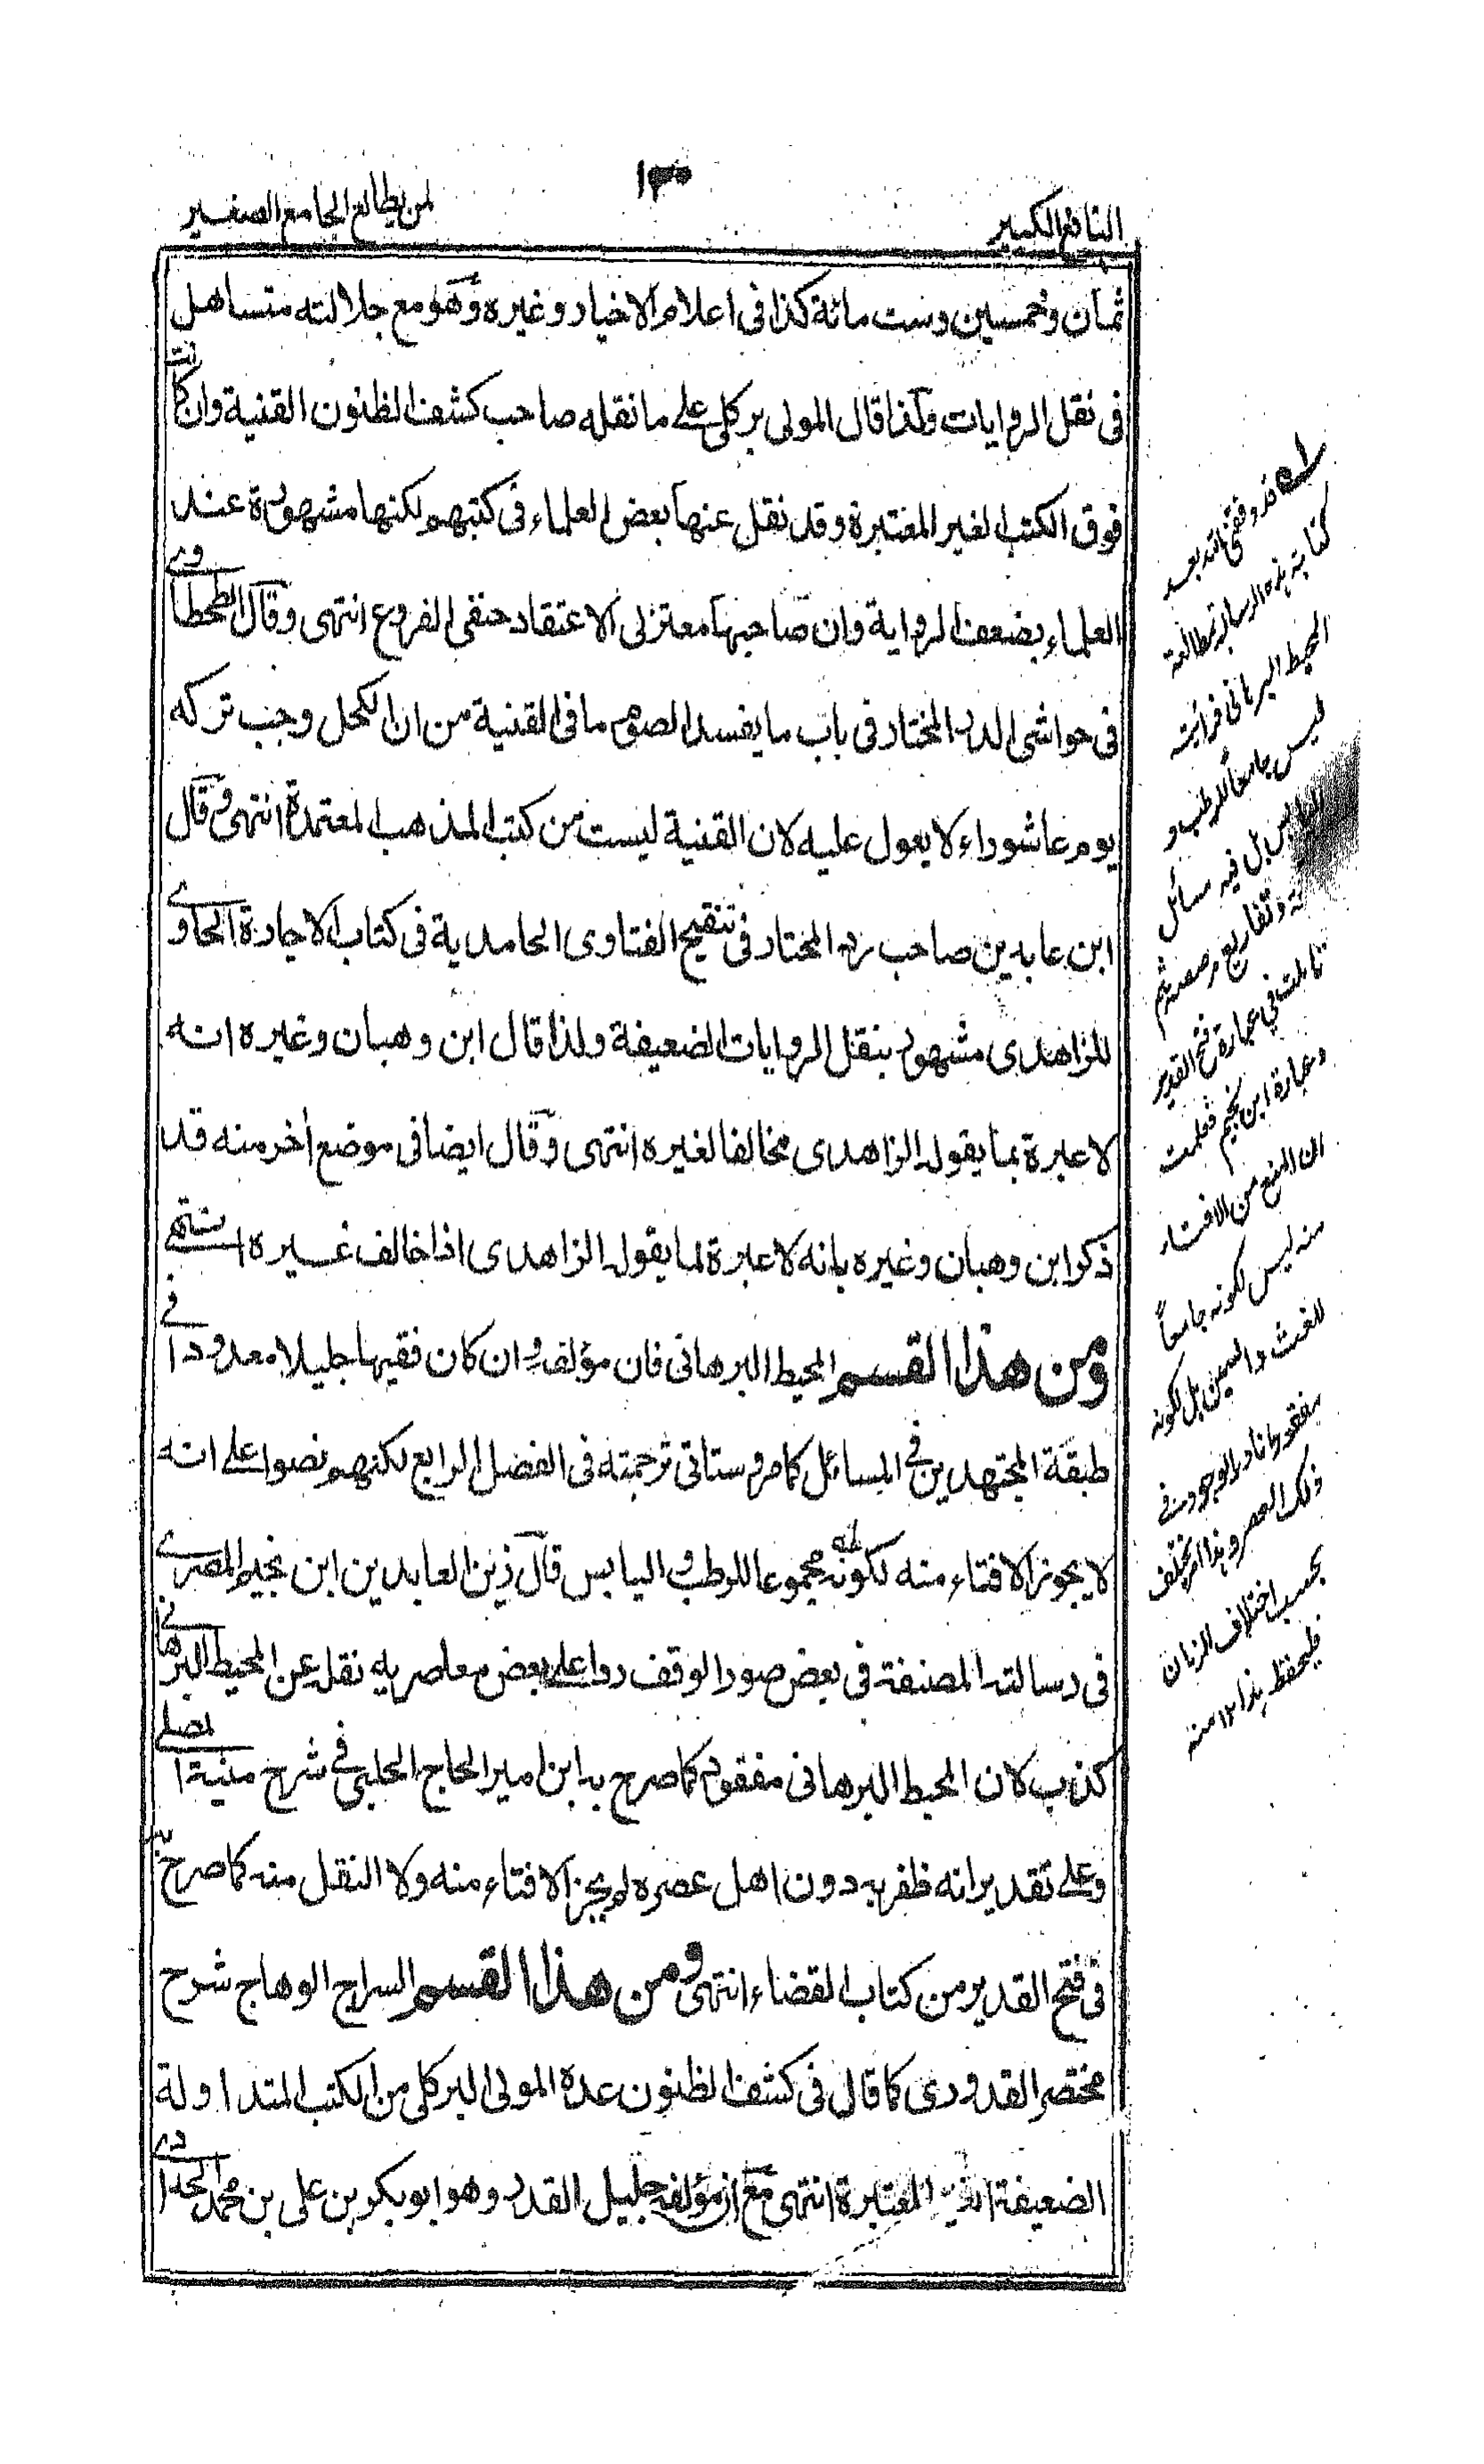 النافع الكبير
١٣٠
لمن يطالع الجامع الصغير
ثمان وخمسين وست مائة كذا فى اعلام الاخيار وغيره وهو مع جلالته متساهل
فى نقل الروايات ولذا قال المولى بركلى على ما نقله صاحب كشف الظنون القنية وان كانت
فوق الكتب الغير المعتبرة وقد نقل عنها بعض العلماء فى كتبهم لكنها مشهورة عند
العلماء بضعف الرواية وان صاحبها معتزلى الاعتقاد حنفى الفروع انتهى وقال الطحطاوى
فى حواشى الدر المختار فى باب ما يفسد الصوم ما فى القنية من ان الكحل وجب تركه
يوم عاشوراء لا يعول عليه لان القنية ليست من كتب المذهب المعتمدة انتهى وقال
ابن عابدين صاحب رد المحتار فى تنقيح الفتاوى الحامدية فى كتاب الاجارة الحاوى
للزاهدى مشهور بنقل الروايات الضعيفة ولذا قال ابن وهبان وغيره انه
لا عبرة بما يقوله الزاهدى مخالفا لغيره انتهى وقال ايضا فى موضع اخر منه قد
ذكر ابن وهبان وغيره بانه لا عبرة لما يقوله الزاهدى اذا خالف غيره انتهى
ومن هذا القسم المحيط البرهانى فان مؤلفه وان كان فقيها جليلا معدودا فى
طبقة المجتهدين فى المسائل كما مر وستاتى ترجمته فى الفصل الرابع لكنهم نصوا على انه
لا يجوز الافتاء منه لكونه مجموعا للرطب واليابس قال زين العابدين ابن نجيم المصرى
فى رسالته المصنفة فى بعض صور الوقف ردا على بعض معاصريه نقله عن المحيط البرهانى
كذب لان المحيط البرهانى مفقود كما صرح به ابن امير الحاج الحلبى فى شرح منية المصلى
وعلى تقدير انه ظفر به دون اهل عصره لم يجز الافتاء منه ولا النقل منه كما صرح به
فى فتح القدير من كتاب القضاء انتهى ومن هذا القسم السراج الوهاج شرح
مختصر القدورى كما قال فى كشف الظنون عده المولى البركلى من الكتب المتداولة
الضعيفة الغير المعتبرة انتهى مع ان مؤلفه جليل القدر وهو ابو بكر بن على بن محمد الحدادى
له قد وفقنى الله بعد
كتابة هذه الرسالة بمطالعة
المحيط البرهانى فرأيته
ليس جامعا للرطب و
اليابس بل فيه مسائل
وتفاريع مرصصة ثم
تأملت فى عبارة فتح القدير
وعبارة ابن نجيم فعلمت
ان المنع من الافتاء
منه ليس لكونه جامعا
للغث والسمين بل لكونه
مفقودا نادر الوجود فى
ذلك العصر وهذا امر يختلف
بحسب اختلاف الزمان
فليحفظ هذا ١٢ منه